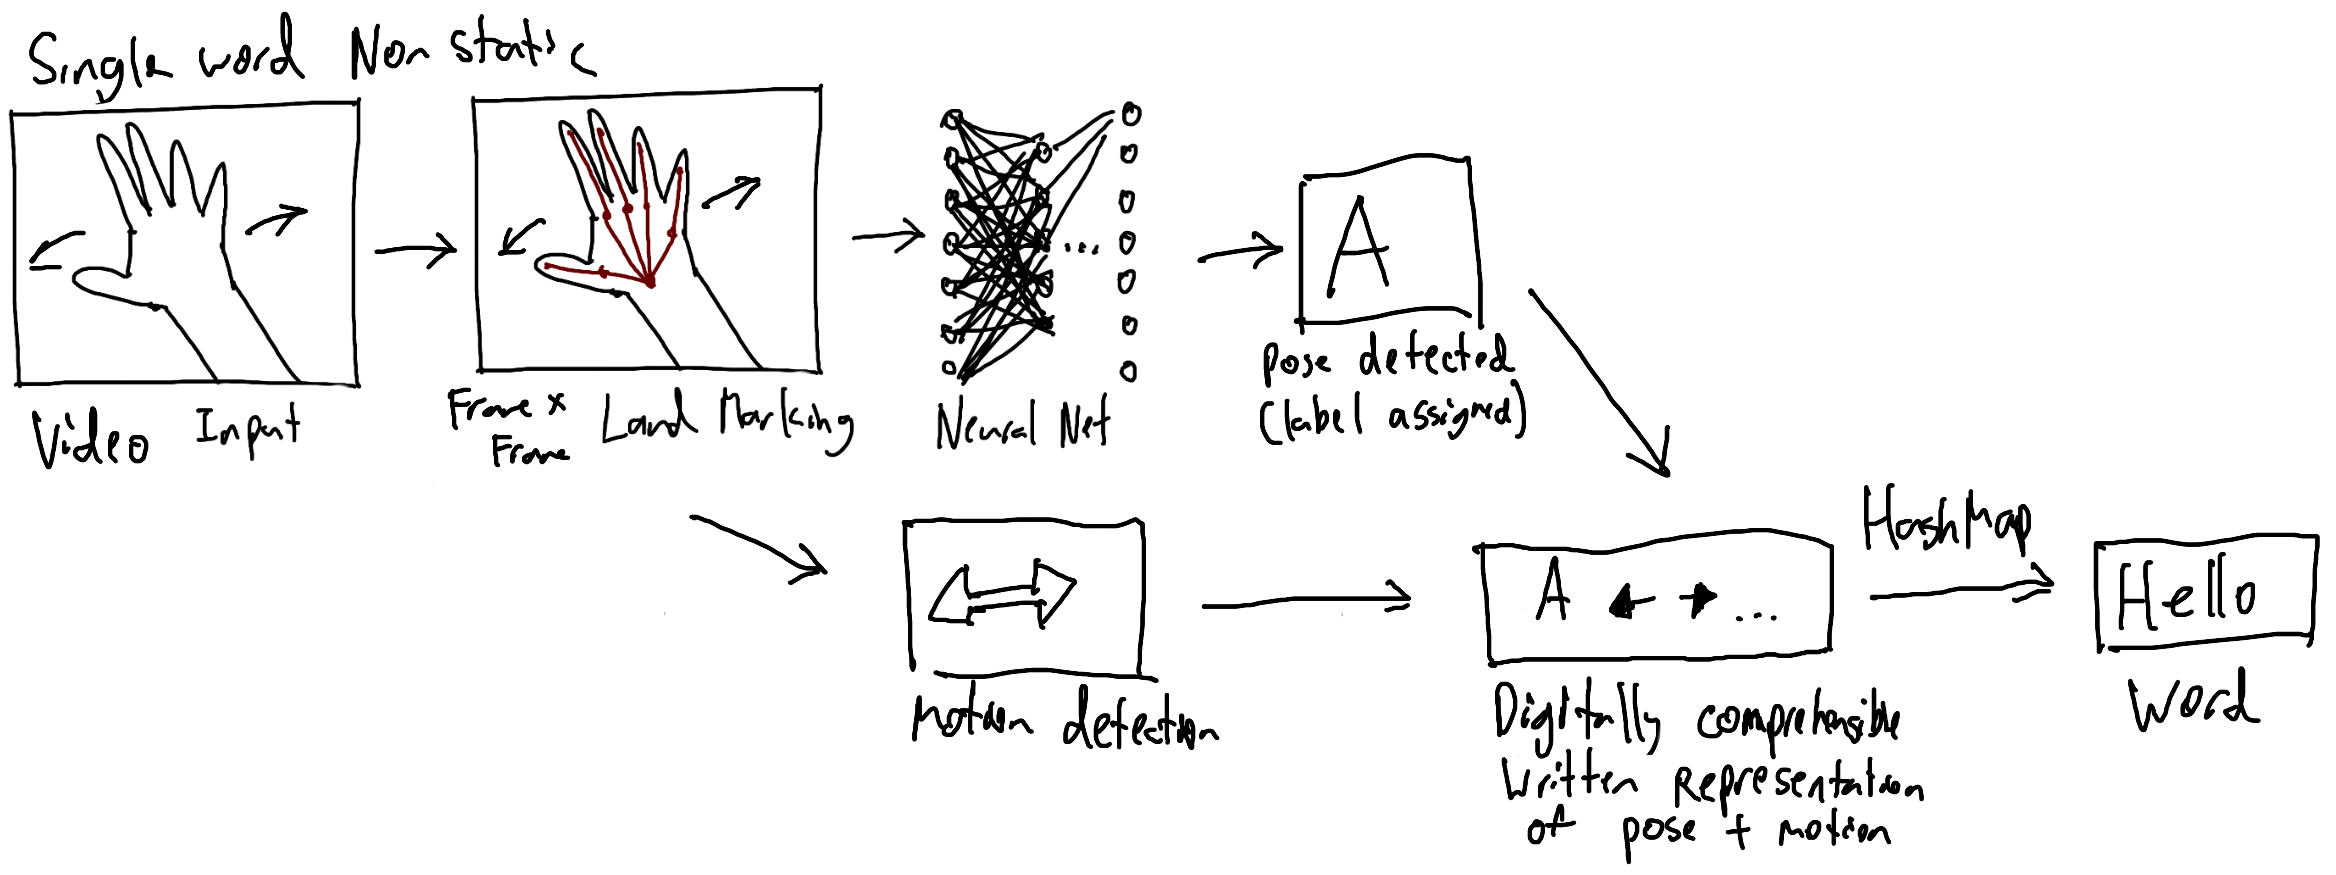 Single word Non static
Video Input
Frame x
Frame
Land Marking
Neural Net
A
pose detected
(label assigned)
Motion detection
A ...
Digitally comprehensible
Written Representation
of pose + motion
HashMap
Hello
Word